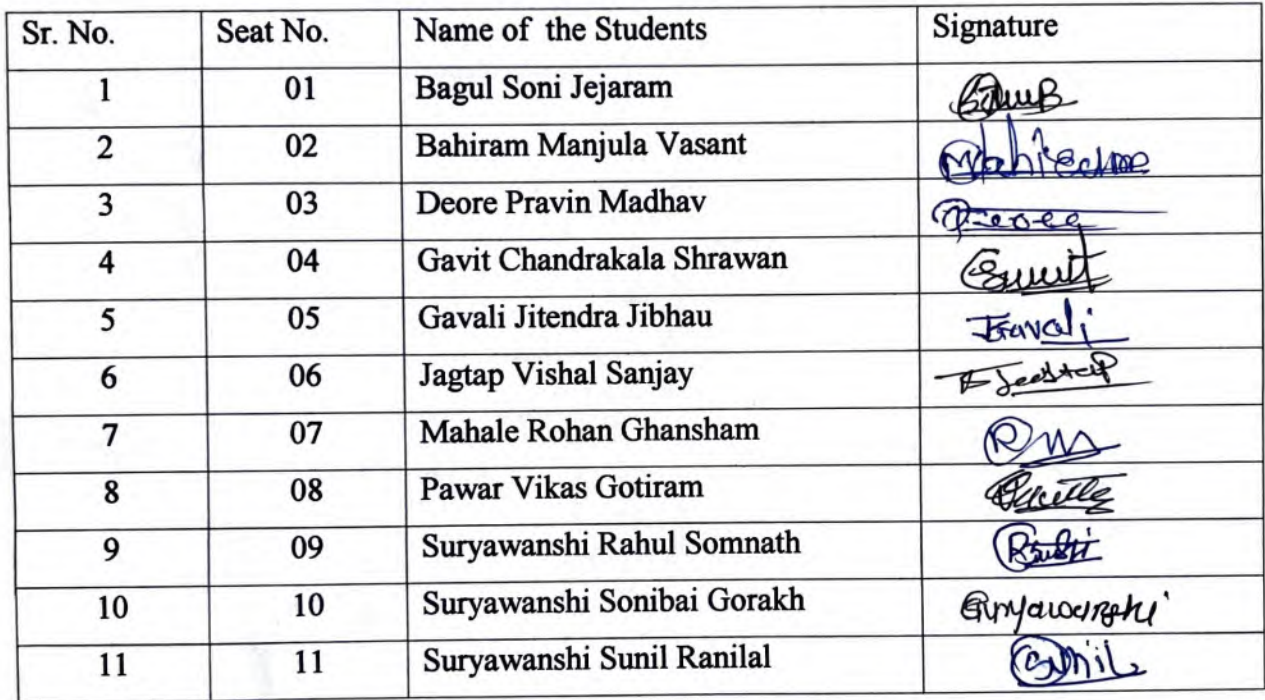 Sr. No. Seat No. Name of the Students Signature
1 01 Bagul Soni Jejaram
2 02 Bahiram Manjula Vasant
3 03 Deore Pravin Madhav
4 04 Gavit Chandrakala Shrawan
5 05 Gavali Jitendra Jibhau
6 06 Jagtap Vishal Sanjay
7 07 Mahale Rohan Ghansham
8 08 Pawar Vikas Gotiram
9 09 Suryawanshi Rahul Somnath
10 10 Suryawanshi Sonibai Gorakh
11 11 Suryawanshi Sunil Ranilal